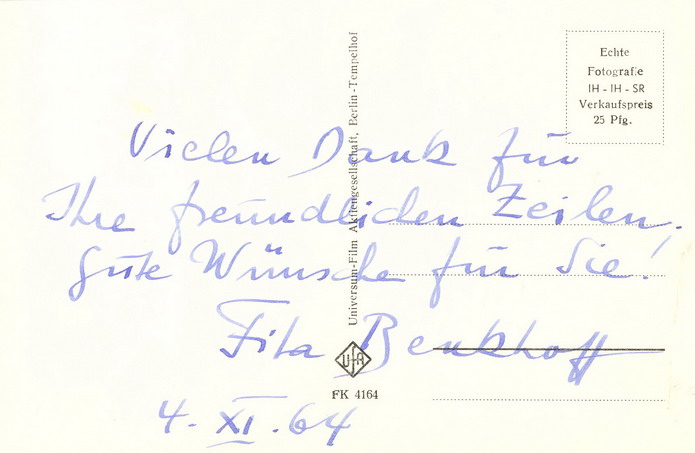 Echte
Fotografie
IH - IH - SR
Verkaufspreis
25 Pfg.
Universum-Film Aktiengesellschaft, Berlin-Tempelhof
Vielen Dank für
Ihre freundlichen Zeilen,
gute Wünsche für Sie!
Fita Benkhoff
UFA
FK 4164
4. XI. 64